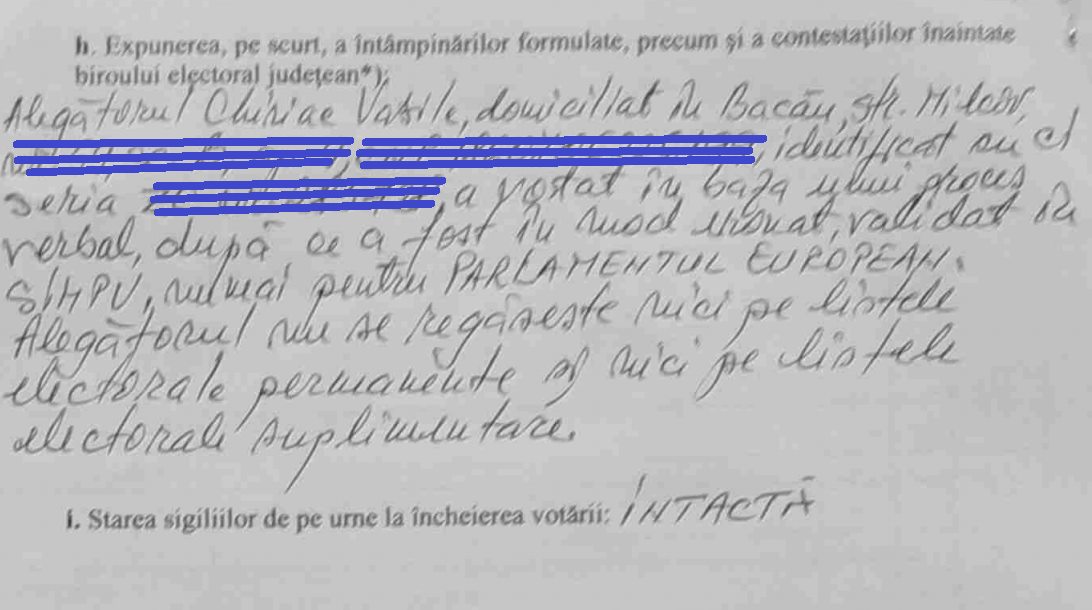 h. Expunerea, pe scurt, a întâmpinărilor formulate, precum și a contestațiilor înaintate
biroului electoral județean*);
Alegătorul Chiriac Vasile, domiciliat în Bacău, str.
identificat cu CI
seria , a votat în baza unui proces
verbal, după ce a fost în mod eronat, validat în
SIMPV, numai pentru PARLAMENTUL EUROPEAN.
Alegătorul nu se regăsește nici pe listele
electorale permanente și nici pe listele
electorale suplimentare.
i. Starea sigiliilor de pe urne la încheierea votării: INTACTĂ